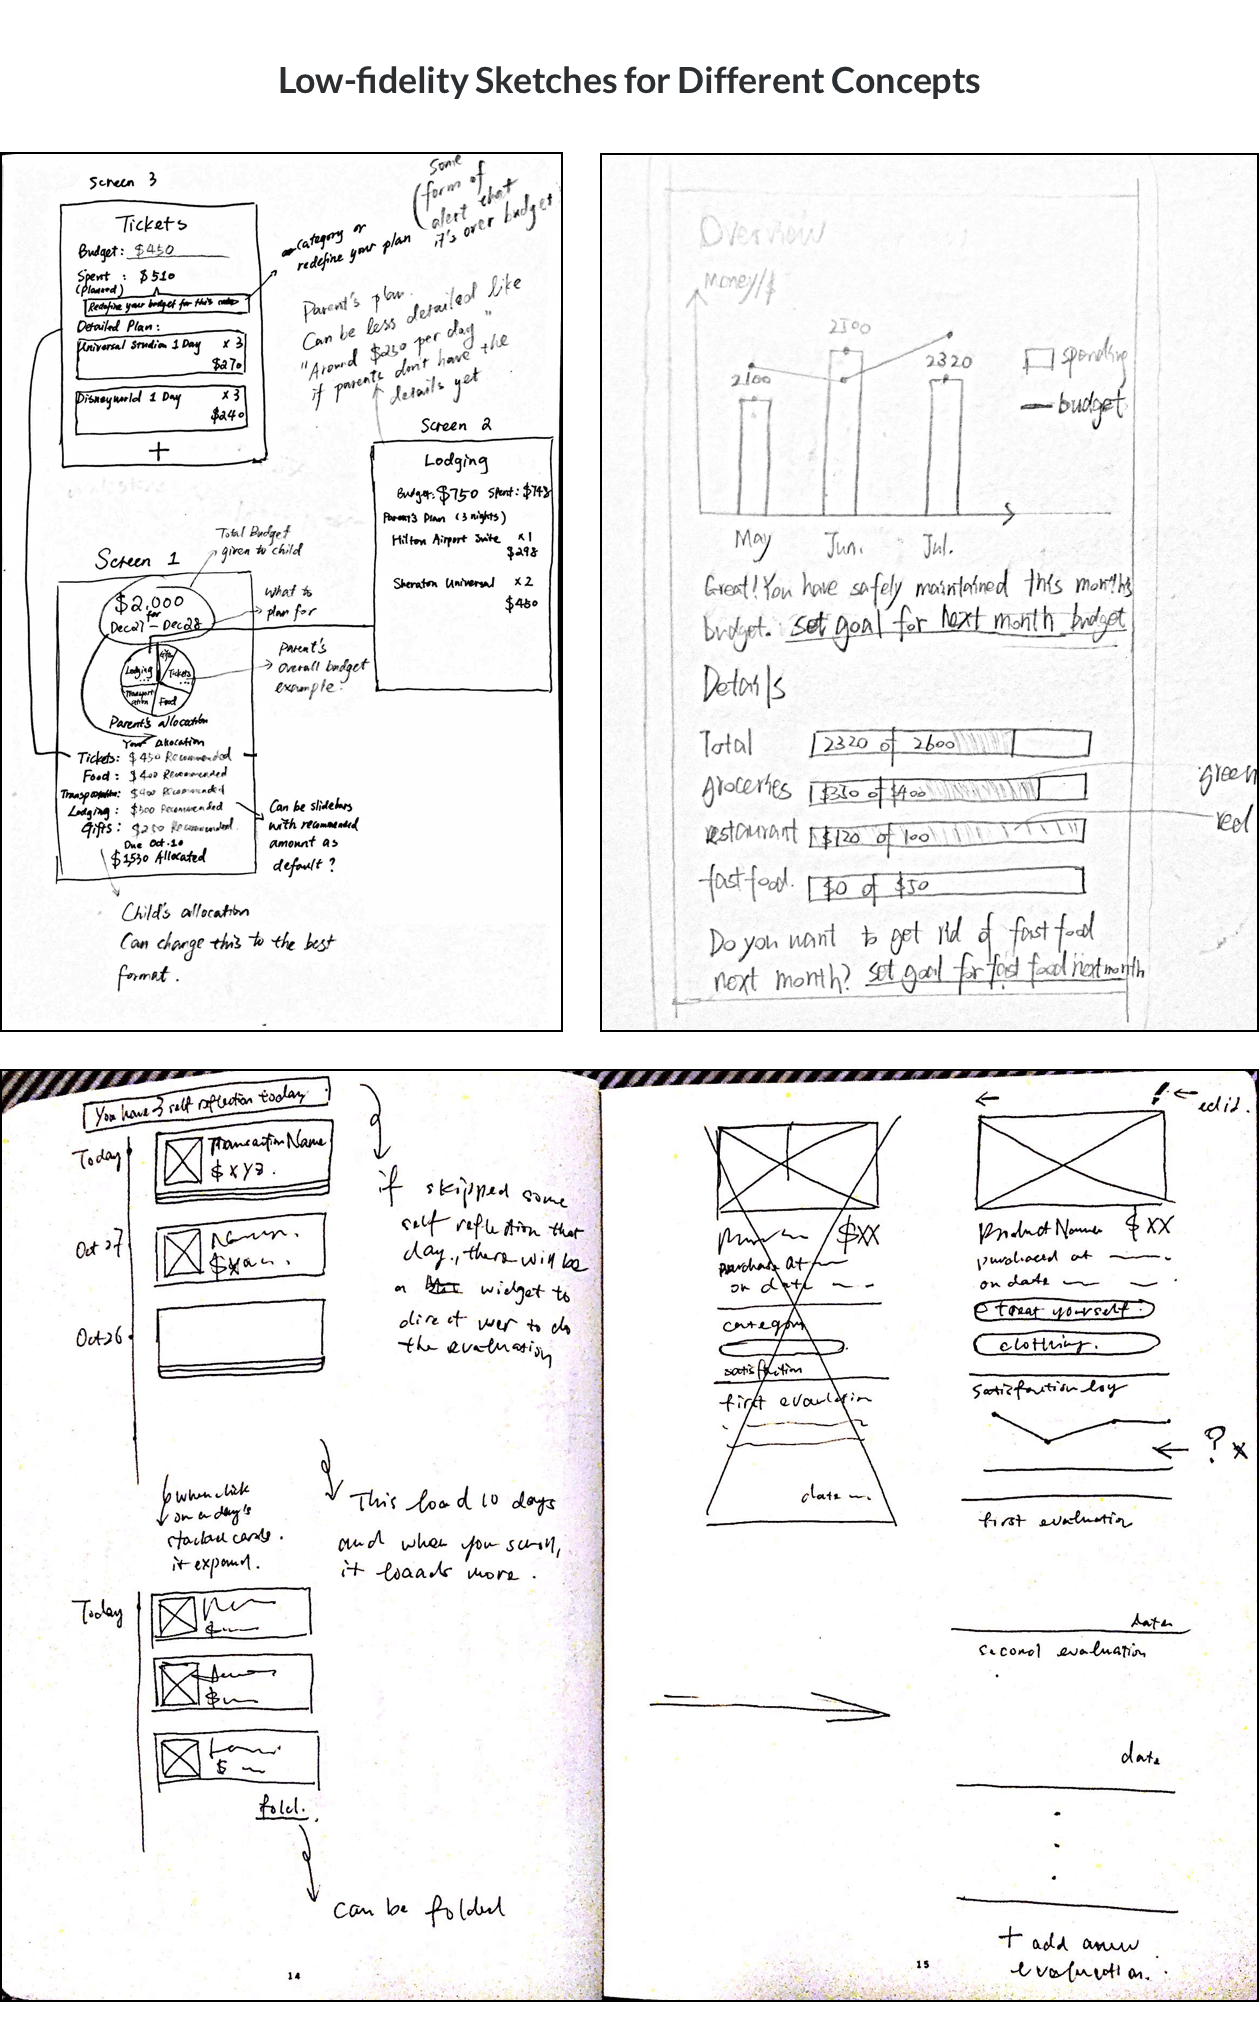 Low-fidelity Sketches for Different Concepts
Screen 3
Tickets
Budget: $450
Spent : $510
(planned)
Redefine your budget for this
Detailed Plan:
Universal Studios 1 Day x 3
$270
Disneyworld 1 Day x 3
$240
+
category or
redefine your plan
Some
form of
alert that
it's over budget
Parent's plan.
Can be less detailed like
"Around $250 per day"
if parents don't have the
details yet
Screen 2
Lodging
Budget: $750 Spent: $748
Parent's Plan (3 nights)
Hilton Airport Suite x1
$298
Sheraton Universal x2
$450
Total Budget
given to child
Screen 1
$2,000
for
Dec 27 - Dec 28
What to
plan for
Lodging
Gifts
Tickets
Food
Parent's
overall budget
example.
Parent's allocation
Your allocation
Tickets: $450 Recommended
Food: $400 Recommended
Transportation: $400 Recommended
Lodging: $500 Recommended
Gifts: $250 Recommended
Due Oct.10
$1530 Allocated
Can be slidebars
with recommended
amount as
default?
Child's allocation
Can change this to the best
format.
Overview
Money/$
2100
2500
2320
spending
budget
May Jun. Jul.
Great! You have safely maintained this months
budget. set goal for next month budget
Details
Total 2320 of 2600
groceries $350 of $400
green
restaurant $120 of 100
red
fast food. $0 of $50
Do you want to get rid of fast food
next month? set goal for fast food next month
You have 3 self reflection today.
Today
Transaction Name
$ XYZ.
Oct 27
Name.
Oct 26
if skipped some
self reflection that
day., there will be
a widget to
direct user to do
the evaluation
when click
on a day's
stacked cards.
it expand.
This load 10 days
and when you scroll,
it loads more.
Today
fold.
can be folded
14
$XX
purchase at
on date
category
satisfaction
first evaluation
date
← ! ← edit.
Product Name $ XX
purchased at
on date
treat yourself.
clothing.
Satisfaction log
← ? x
first evaluation
date
second evaluation
date
+ add a new
evaluation.
15